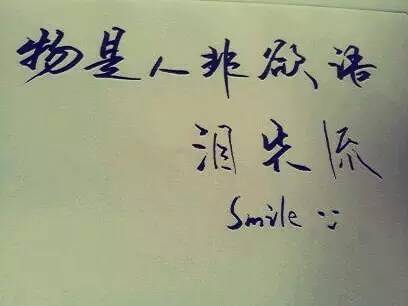 物是人非欲语
泪先流
Smile :)